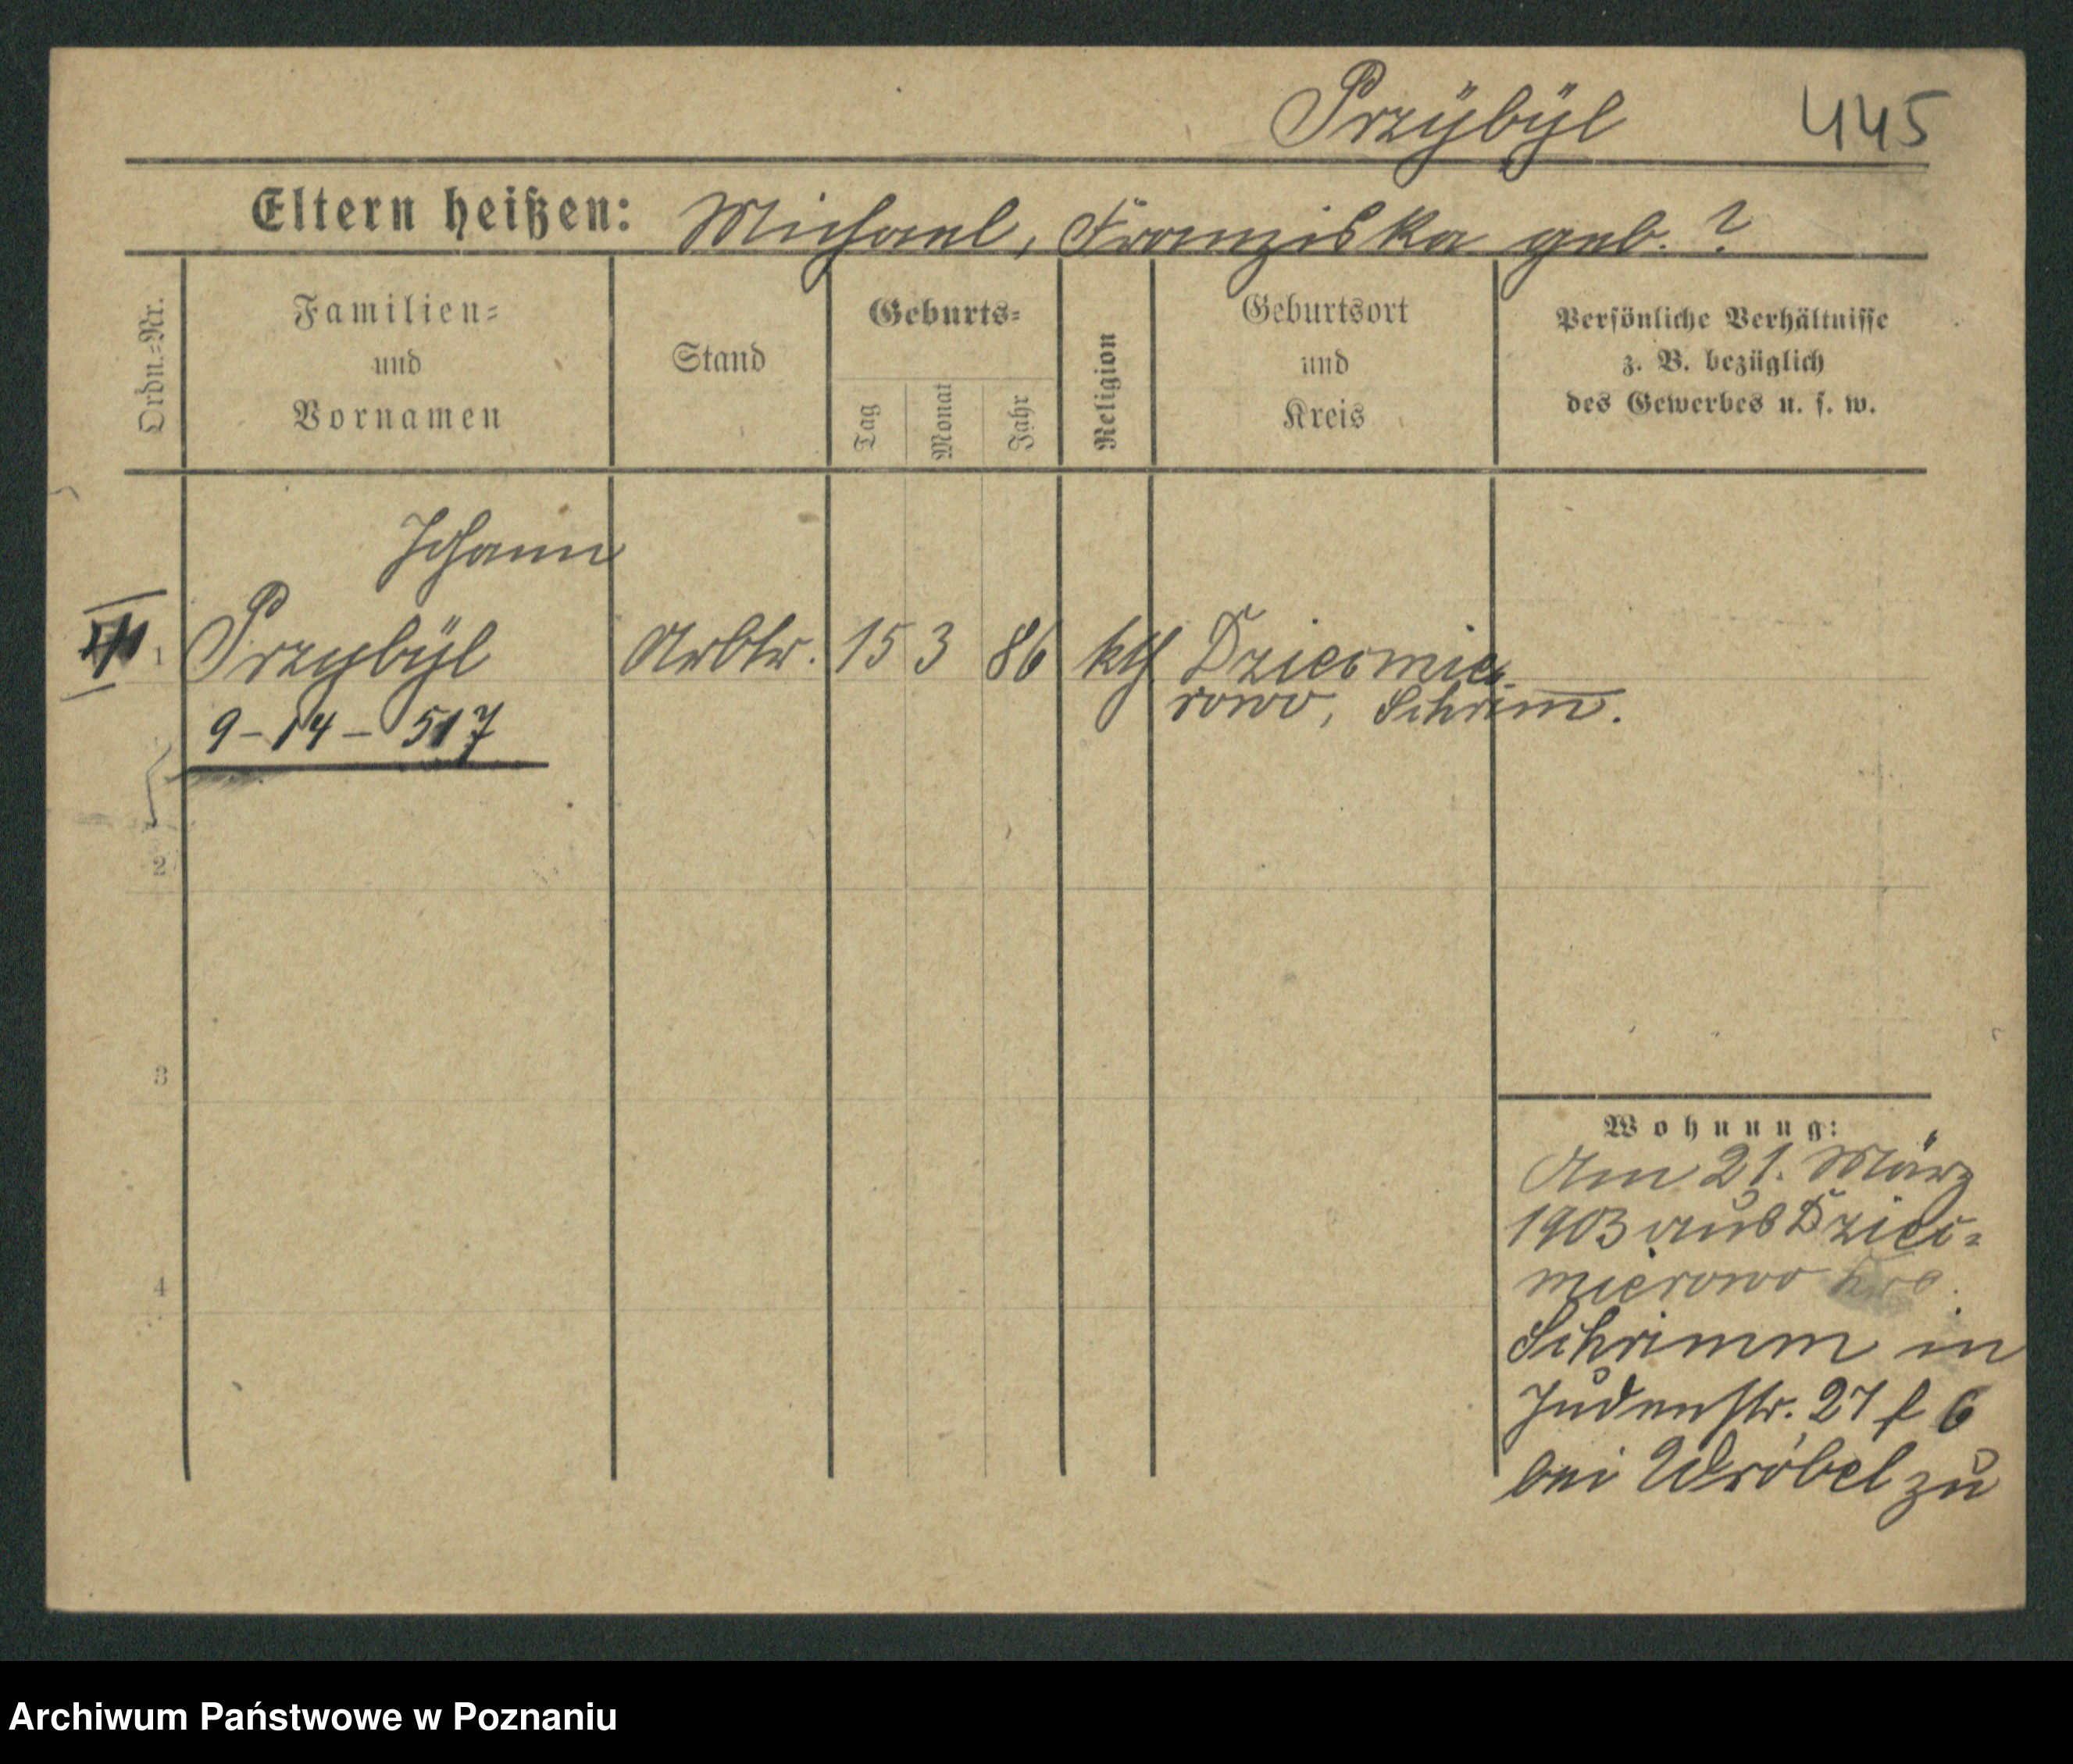 Przÿbÿl 445
Eltern heißen: Michael, Franziska geb. ?
Ordn.=Nr.
Familien=
und
Vornamen
Stand
Geburts=
Tag
Monat
Jahr
Religion
Geburtsort
und
Kreis
Persönliche Verhältnisse
z. B. bezüglich
des Gewerbes u. s. w.
Johann
1 Przybÿl Arbtr. 15 3 86 kth Dziecmie
rowo, Schrim̅.
9-14-517
2
3
4
Wohnung:
Am 21. März
1903 aus Dziec=
mierowo
Schrimm in
Judenstr. 27 f 6
bei Wróbel zu
Archiwum Państwowe w Poznaniu